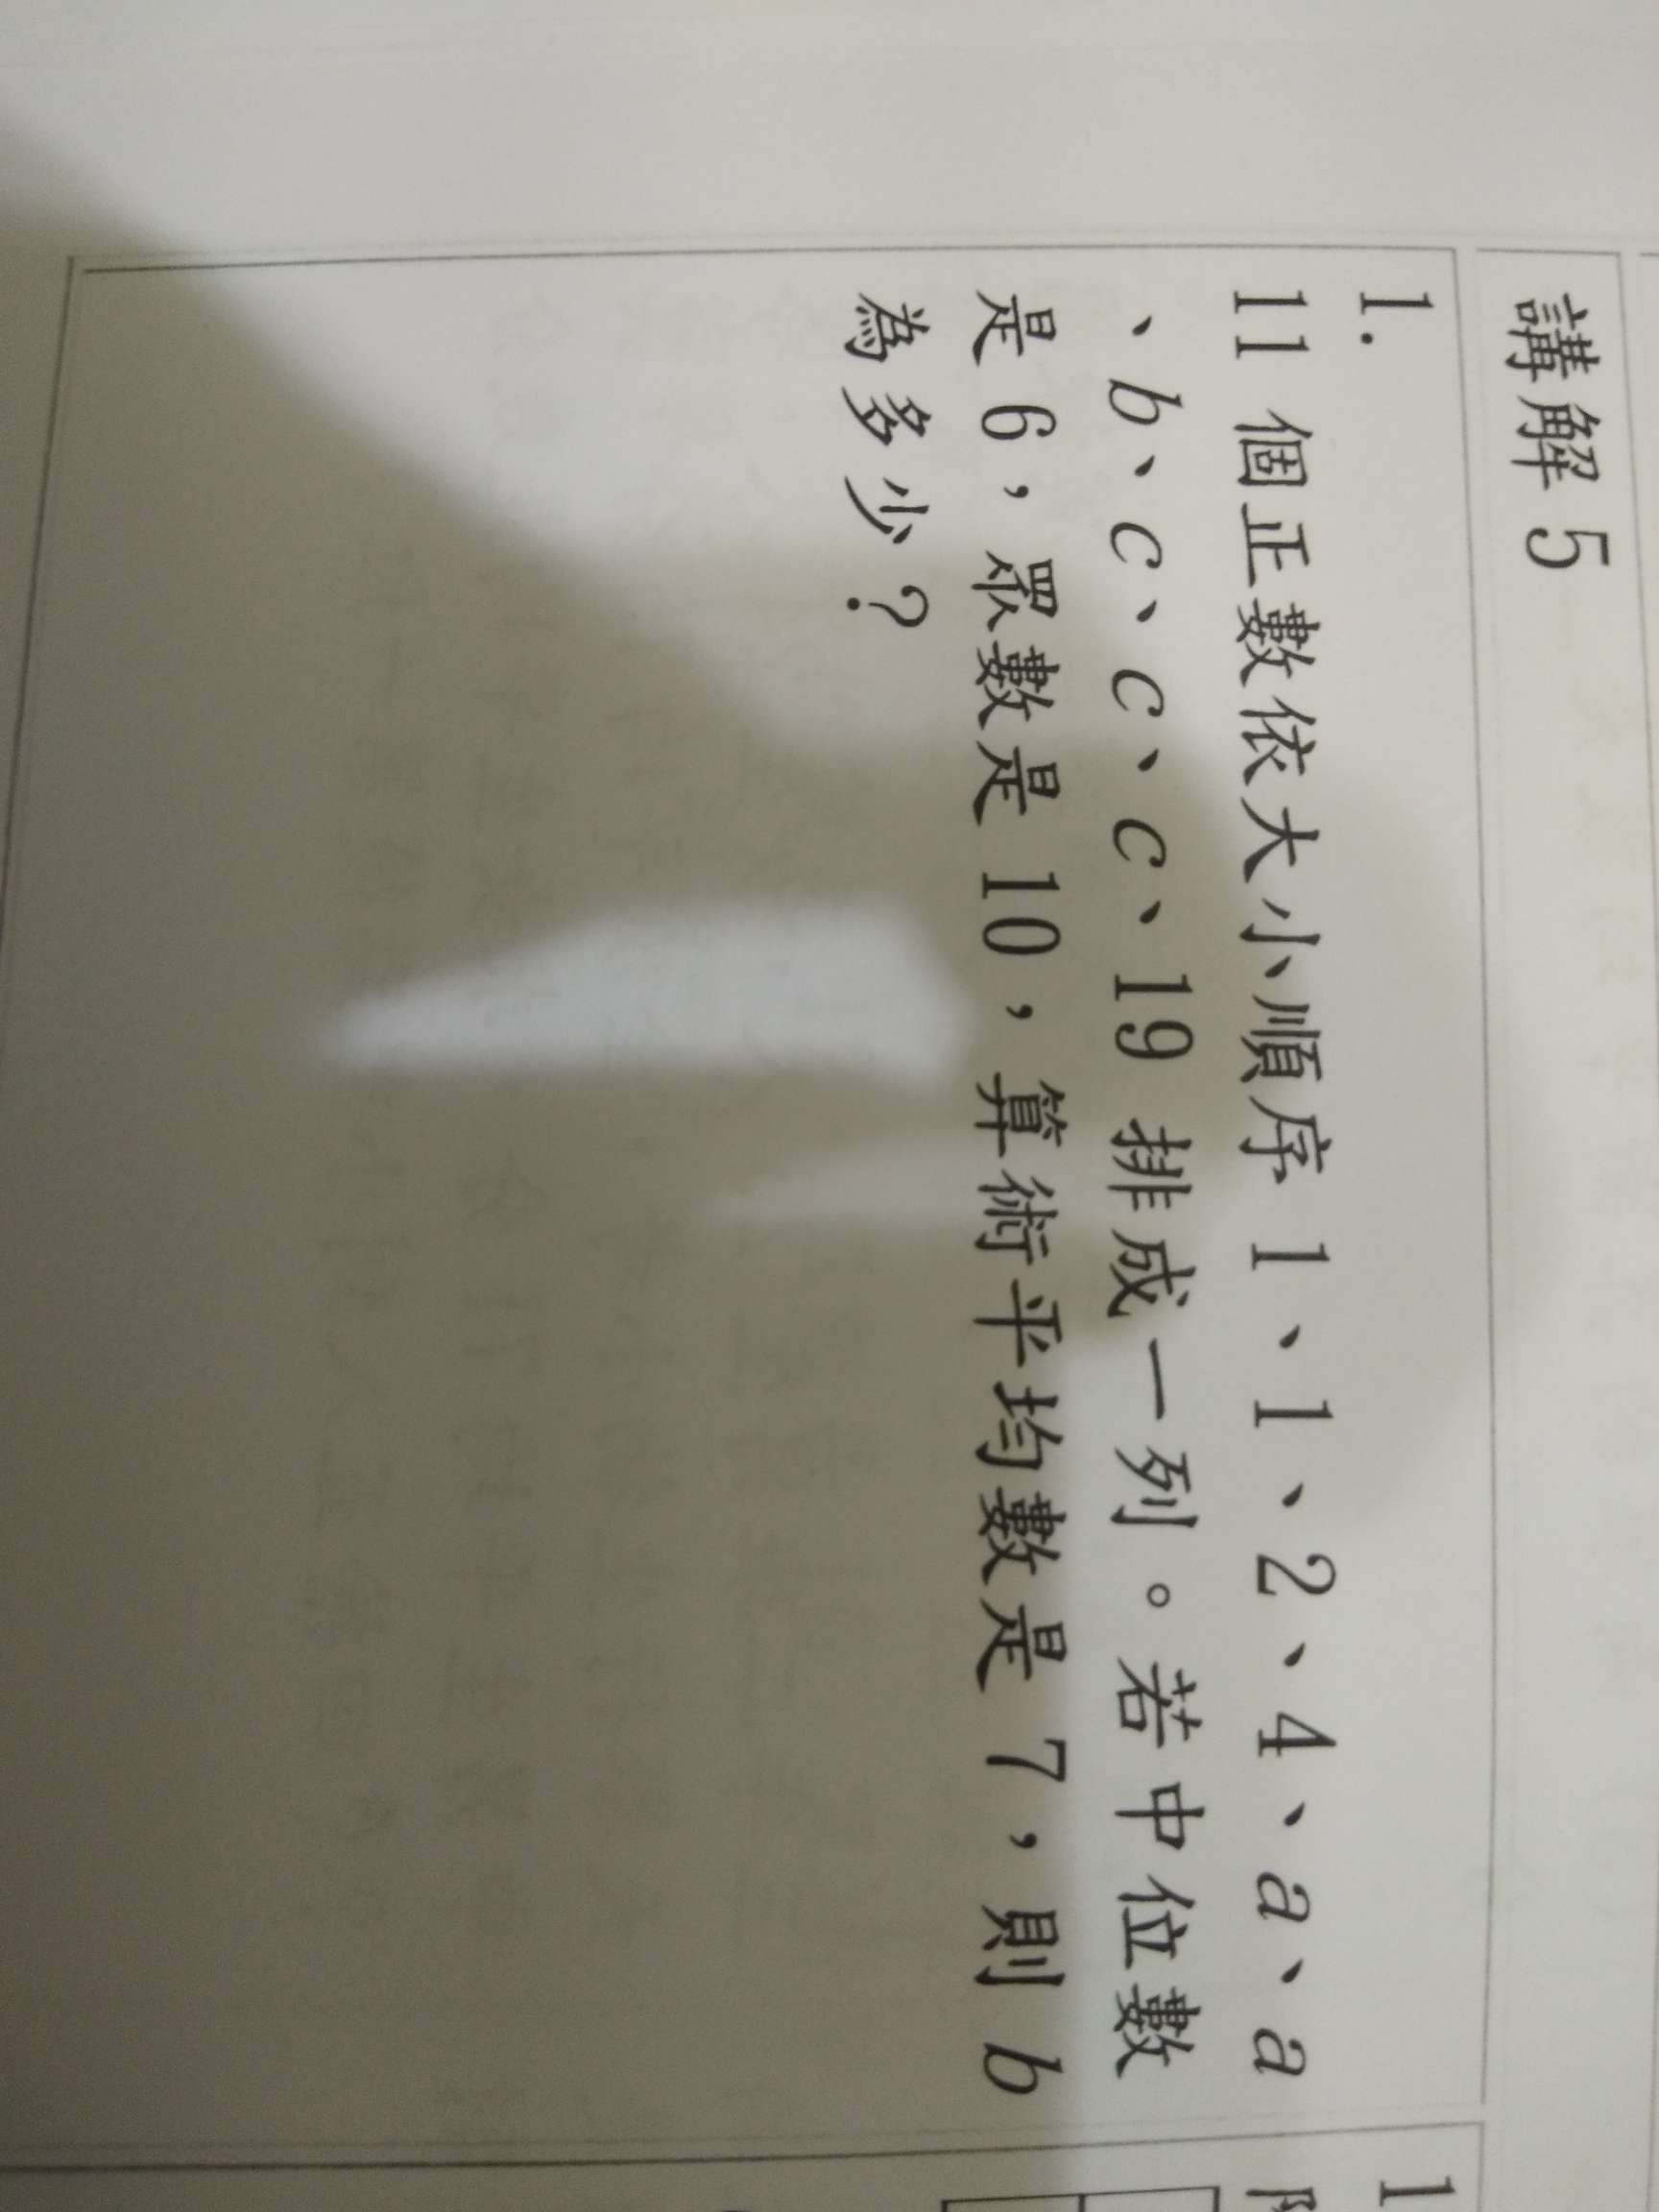 講解 5
1.
11 個正數依大小順序 1、1、2、4、a、a
、b、c、c、c、19 排成一列。若中位數
是 6，眾數是 10，算術平均數是 7，則 b
為多少？
1